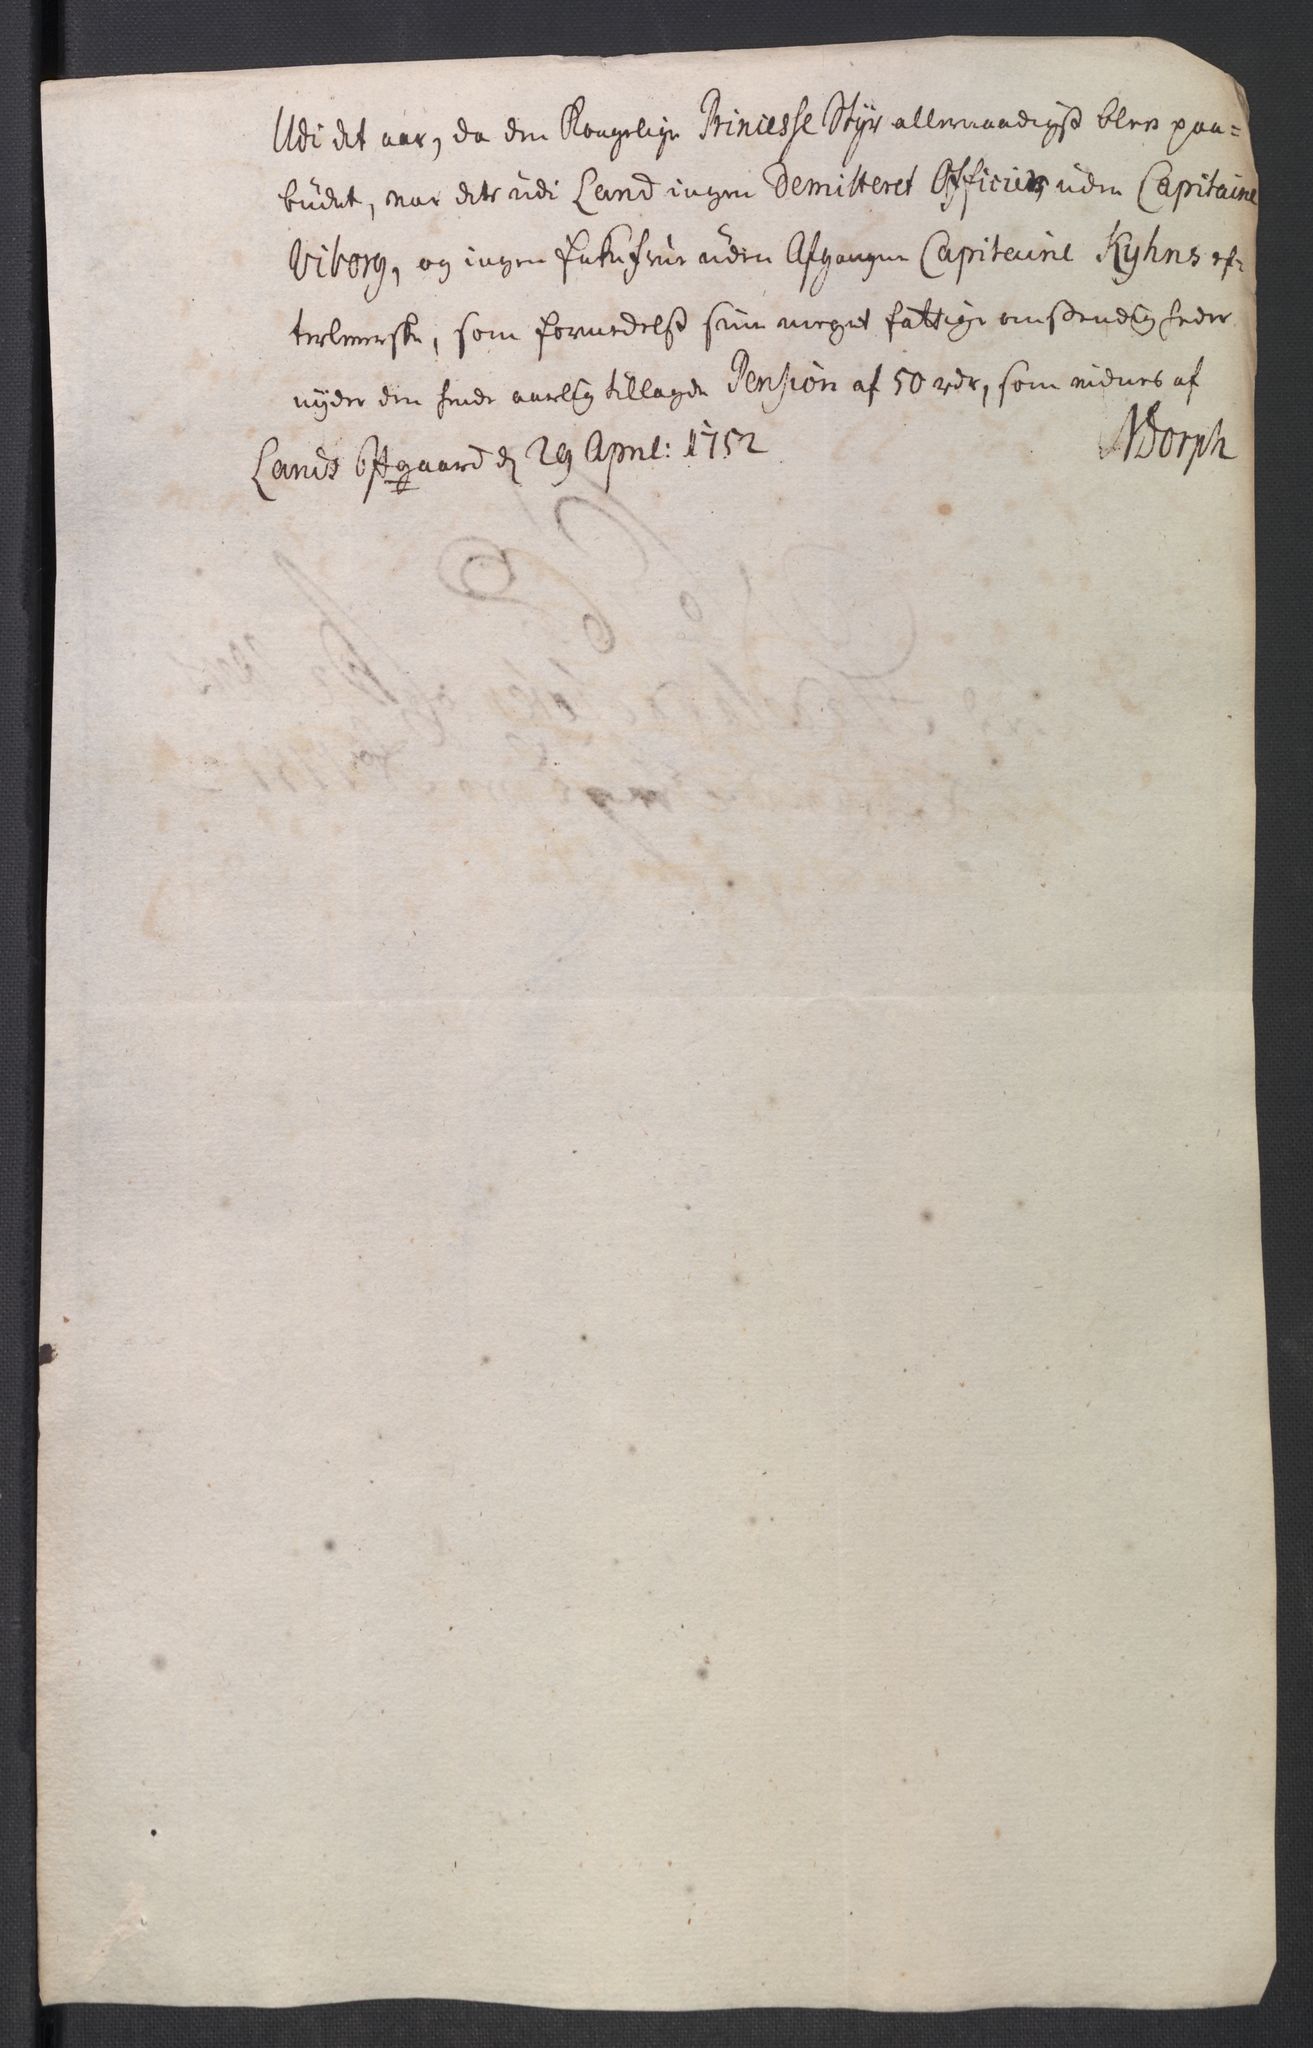 Udi det aar, da den Kongelige Princesse Styr allernaadigst blev paa=
budet, var dets udi Land ingen Demitteret Officier, uden Capitaine
Viborg, og ingen Enkefrue uden Afgangne Capitaine Kyhns ef-
terleverske, som formedelst sine meget fattige omstendigheder
nyder den hende aarlig tillagde Pension af 50 rdr, som vidnes af
Lands Gaard d 29 April: 1752
NDorph